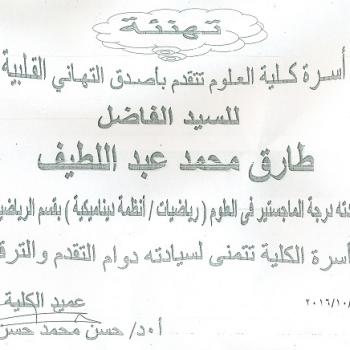 تهنئة
أسرة كلية العلوم تتقدم بأصدق التهاني القلبية
للسيد الفاضل
طارق محمد عبد اللطيف
درجة الماجستير فى العلوم ( رياضيات / أنظمة ديناميكية ) بقسم الرياضي
أسرة الكلية تتمنى لسيادته دوام التقدم والترق
عميد الكلية
٢٠١٦/١٠/
أ.د/ حسن محمد حسن